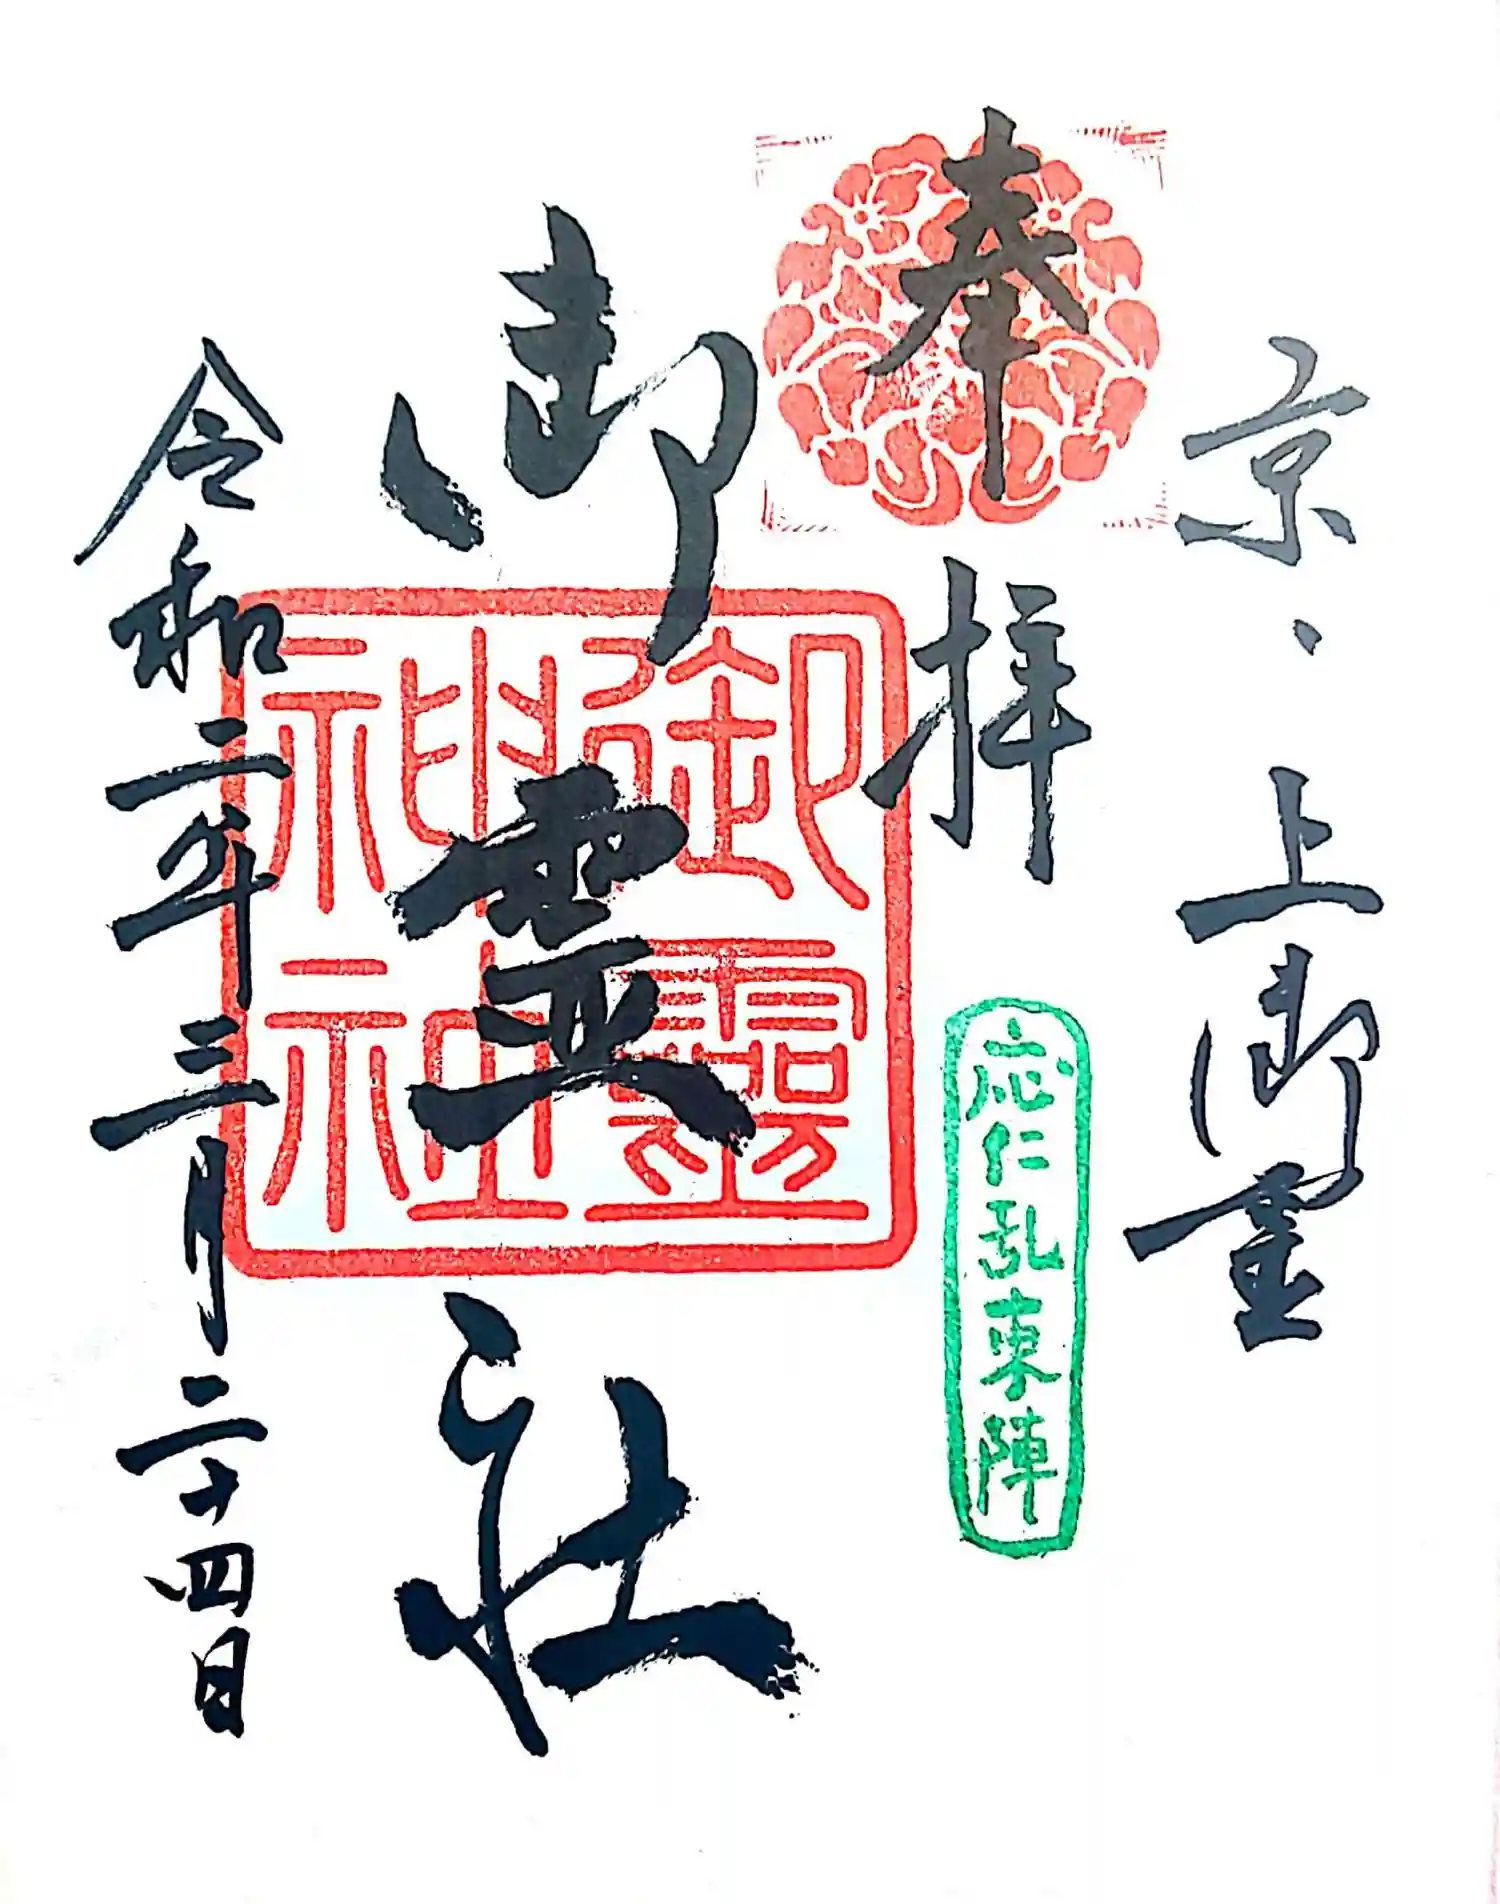 京・上御霊
奉拝
応仁乱東陣
御霊社
御靈神社
令和二年三月二十四日